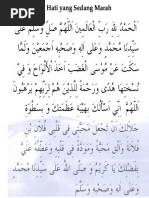 Hati yang Sedang Marah
اَلْحَمْدُ لِلّٰهِ رَبِّ الْعَالَمِيْنَ اَللّٰهُمَّ صَلِّ وَسَلِّمْ عَلٰى
سَيِّدِنَا مُحَمَّدٍ وَعَلٰى اٰلِهِ وَصَحْبِهِ اَجْمَعِيْنَ وَلَمَّا
سَكَتَ عَنْ مُوْسَى الْغَضَبُ اَخَذَ الْاَلْوَاحَ وَفِيْ
نُسْخَتِهَا هُدًى وَرَحْمَةٌ لِلَّذِيْنَ هُمْ لِرَبِّهِمْ يَرْهَبُوْنَ
اَللّٰهُمَّ اِنِّيْ اَسْاَلُكَ بِهَيْبَةِ عَظَمَتِكَ وَبِسَطْوَةِ
جَلَالِكَ اَنْ تَجْعَلَ مَحَبَّتِيْ فِيْ قَلْبِ فُلَانِ بْنِ
سَيِّدِنَا مُحَمَّدٍ
وَعَلٰى اٰلِهِ وَصَحْبِهِ وَسَلَّمَ